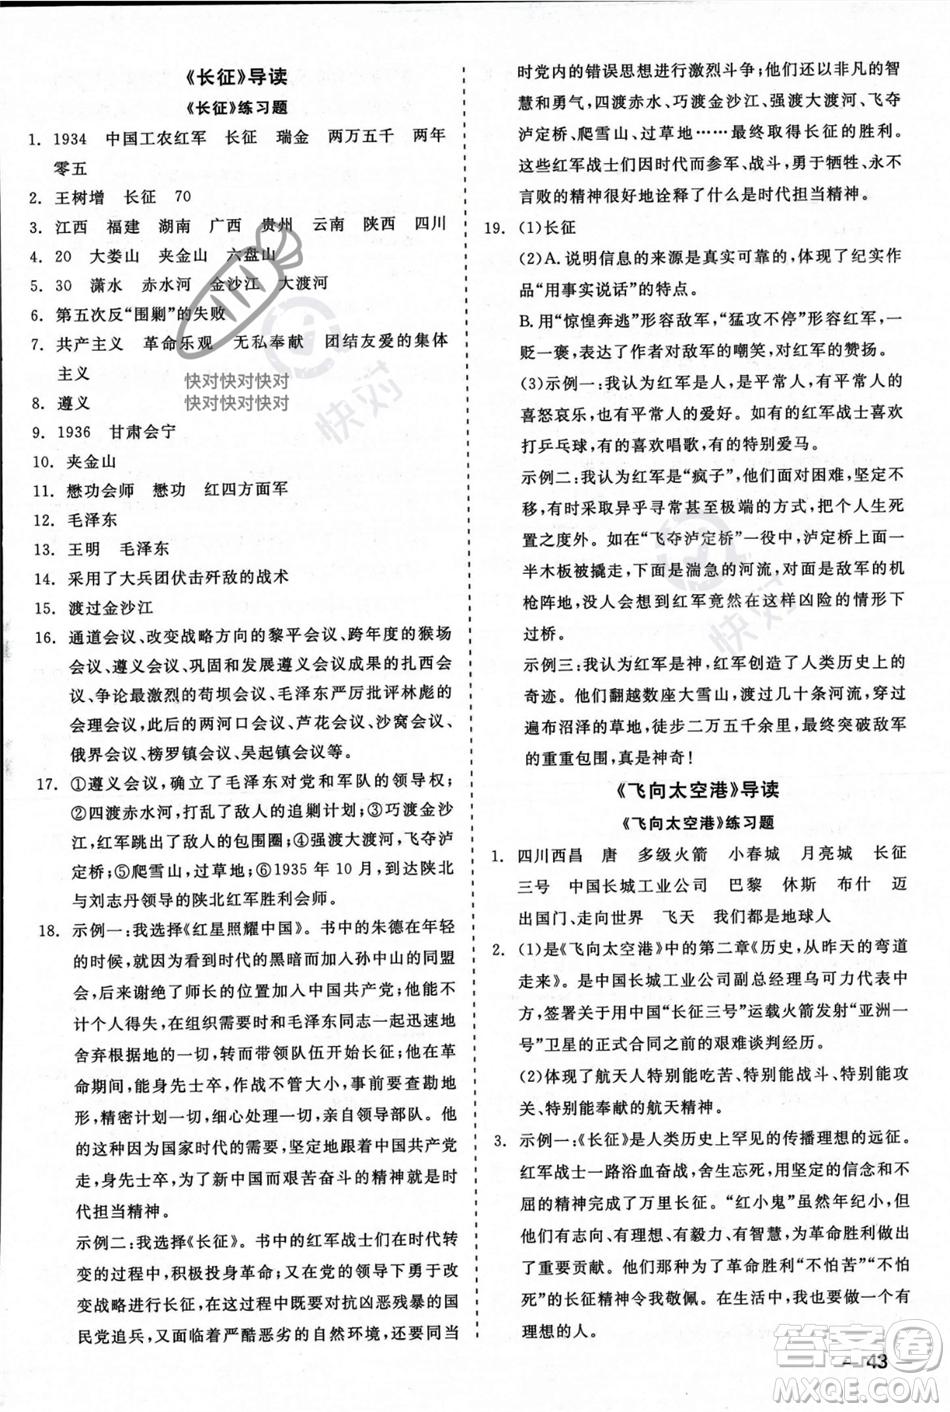 《长征》导读
《长征》练习题
1. 1934 中国工农红军 长征 瑞金 两万五千 两年
零五
2. 王树增 长征 70
3. 江西 福建 湖南 广西 贵州 云南 陕西 四川
4. 20 大娄山 夹金山 六盘山
5. 30 潇水 赤水河 金沙江 大渡河
6. 第五次反“围剿”的失败
7. 共产主义 革命乐观 无私奉献 团结友爱的集体
主义
8. 遵义
9. 1936 甘肃会宁
10. 夹金山
11. 懋功会师 懋功 红四方面军
12. 毛泽东
13. 王明 毛泽东
14. 采用了大兵团伏击歼敌的战术
15. 渡过金沙江
16. 通道会议、改变战略方向的黎平会议、跨年度的猴场
会议、遵义会议、巩固和发展遵义会议成果的扎西会
议、争论最激烈的苟坝会议、毛泽东严厉批评林彪的
会理会议,此外还有的两河口会议、芦花会议、沙窝会议、
俄界会议、榜罗镇会议、吴起镇会议等。
17. ①遵义会议,确立了毛泽东对党和军队的领导权;
②四渡赤水河,打乱了敌人的追剿计划;③巧渡金沙
江,红军跳出了敌人的包围圈;④强渡大渡河、飞夺泸
定桥;⑤爬雪山,过草地;⑥1935年10月,到达陕北
与刘志丹领导的陕北红军胜利会师。
18. 示例一:我选择《红星照耀中国》。书中的朱德在年轻
的时候,因为看到清政府的黑暗而加入孙中山的同盟
会,后来谢绝了师长的位置而加入中国共产党;他能
和工人同患难,在组织需要时与毛泽东同志一起迅速地
舍弃根据地的一切,带领队伍开始长征;他在革
命期间,能身先士卒,做最大胆的尝试,事前要查勘地
形,精密计划一切,细心处理一切,亲自领导部队。他
的种种表现,正因为国家时代的需要,坚定地跟中国共产党
走,也体现了共产党人为了新中国而英勇斗争的革命精神,这就是时
代担当精神。
示例二:我选择《长征》。书中的红军战士们在时代转
变的过程中,积极投身革命;又在党的领导下勇于改
变战略并取得胜利。他们不仅要对抗凶恶残暴的国
民党追兵,对抗着严酷恶劣的自然环境,还要同当
时党内的错误思想进行激烈斗争;他们还以非凡的智慧
和勇气,四渡赤水、巧渡金沙江、强渡大渡河、飞夺
泸定桥、爬雪山、过草地……最终取得长征的胜利。
这些红军战士们因时代而参军、战斗,勇于牺牲、永不
言败的精神很好地诠释了什么是时代担当精神。
19. (1)长征
(2)A.说明信息的来源是真实的,体现了纪实作
品“用事实说话”的特点。
B.用“惊惶奔逃”形容敌军,“猛攻不停”形容红军,
体现了作者对敌军的嘲笑,对红军的赞扬。
(3)示例一:我认为红军是人,是平常人,有平常人的
喜怒哀乐,也有平常人的爱好。如有的红军战士喜欢
打乒乓球,有的喜欢唱歌,有的特别爱马。
示例二:我认为红军是“疯子”,他们面对困难,坚定不
移,有时会采取异乎寻常甚至极端的方式,把生死
置之度外。如在“飞夺泸定桥”一役中,泸定桥上的一
半木板被撬走,下面是湍急的河流,前方是敌军的机
枪阵地,谁也想不到红军是在这样凶险的情形下
过桥。
示例三:我认为红军是神,红军创造了人类历史上的
奇迹。他们翻越数座大雪山,渡过几十条河流,穿过
遍布沼泽的草地,徒步二万五千余里,最终突破敌军
的重重包围,真是神奇!
《飞向太空港》导读
《飞向太空港》练习题
1. 四川西昌 唐 多级火箭 小春城 月亮城 长征
三号 中国长城工业公司 巴黎 休斯 布什 迈
出国门、走向世界 飞天 我们都是地球人
2. (1)是《飞向太空港》中的第二章《历史,从昨天的弯道
走来》。是中国长城工业公司副总经理乌可力代表中
方,签署关于使用中国“长征三号”运载火箭发射“亚洲一
号”卫星的正式合同之前的艰难谈判经历。
(2)体现了航天人特别能吃苦、特别能战斗、特别能攻
关、特别能奉献的航天精神。
3. 示例一:《长征》是人类历史上罕见的传播理想的远征。
红军战士一路浴血奋战,舍生忘死,用坚定的信念和不
屈的精神完成了万里长征。“红小鬼”虽然年纪小,但
他们有理想、有勇气、有毅力、有智慧,为革命胜利做出了
重要贡献。他们为了革命胜利“不怕苦”“不怕
死”的长征精神令我敬佩。在生活中,我也要做一个有
理想的人。
快对快对快对
快对快对快对
快对
快对
答案圈
MXQE.COM
— 43 —